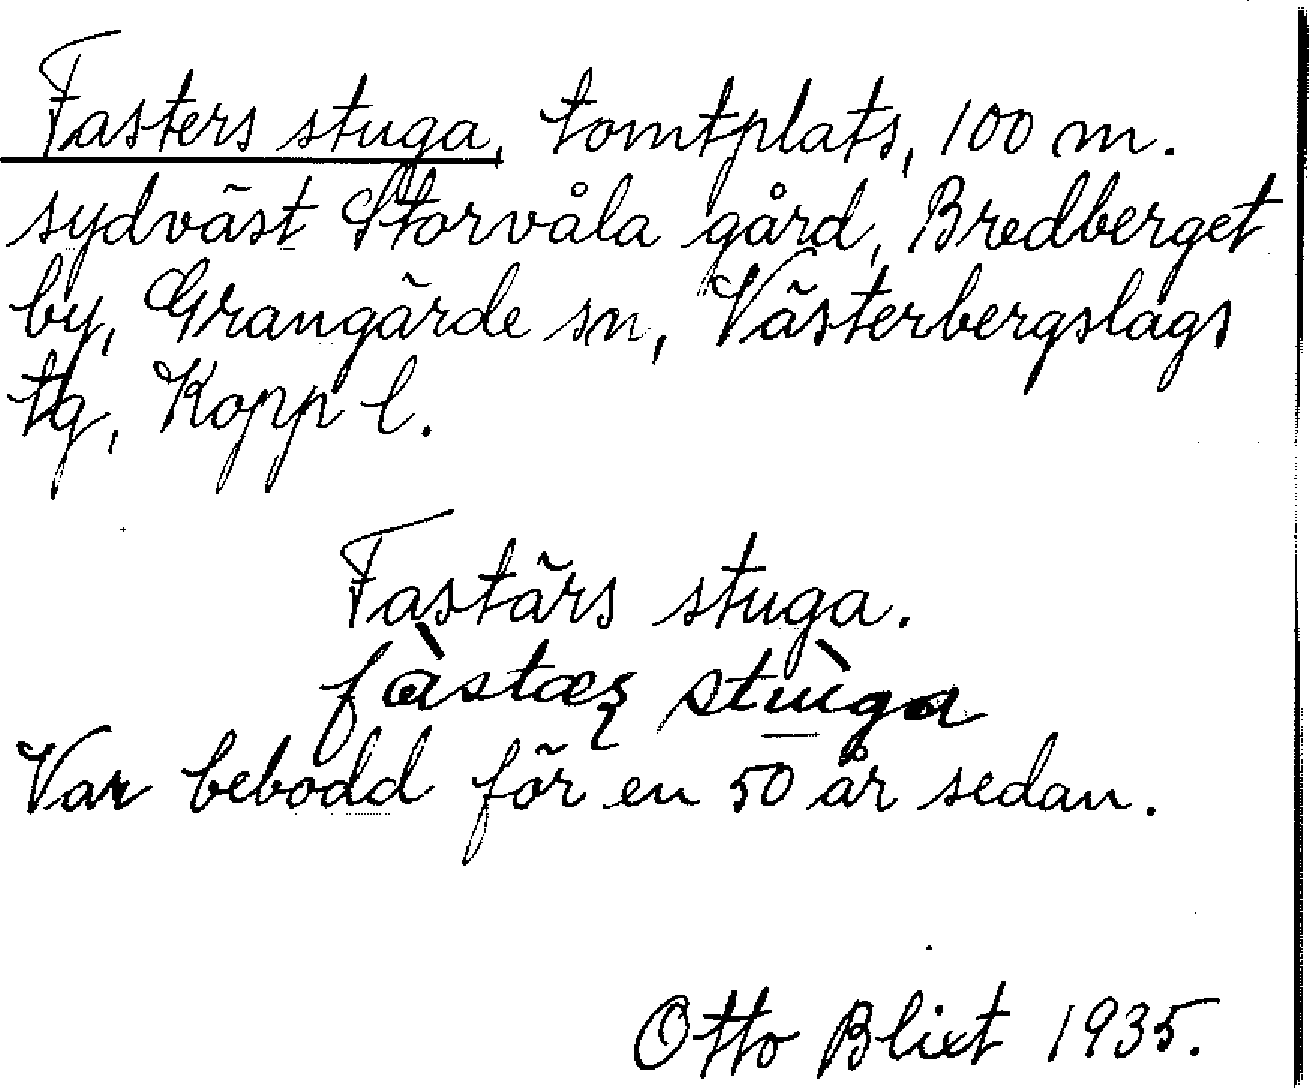 Fasters stuga, tomtplats, 100 m.
sydväst Storvåla gård, Bredberget
by, Grangärde sn, Västerbergslags
tg, Kopp l.
Fastärs stuga.
fàstæʂ stùga
Var bebodd för en 50 år sedan.
Otto Blixt 1935.